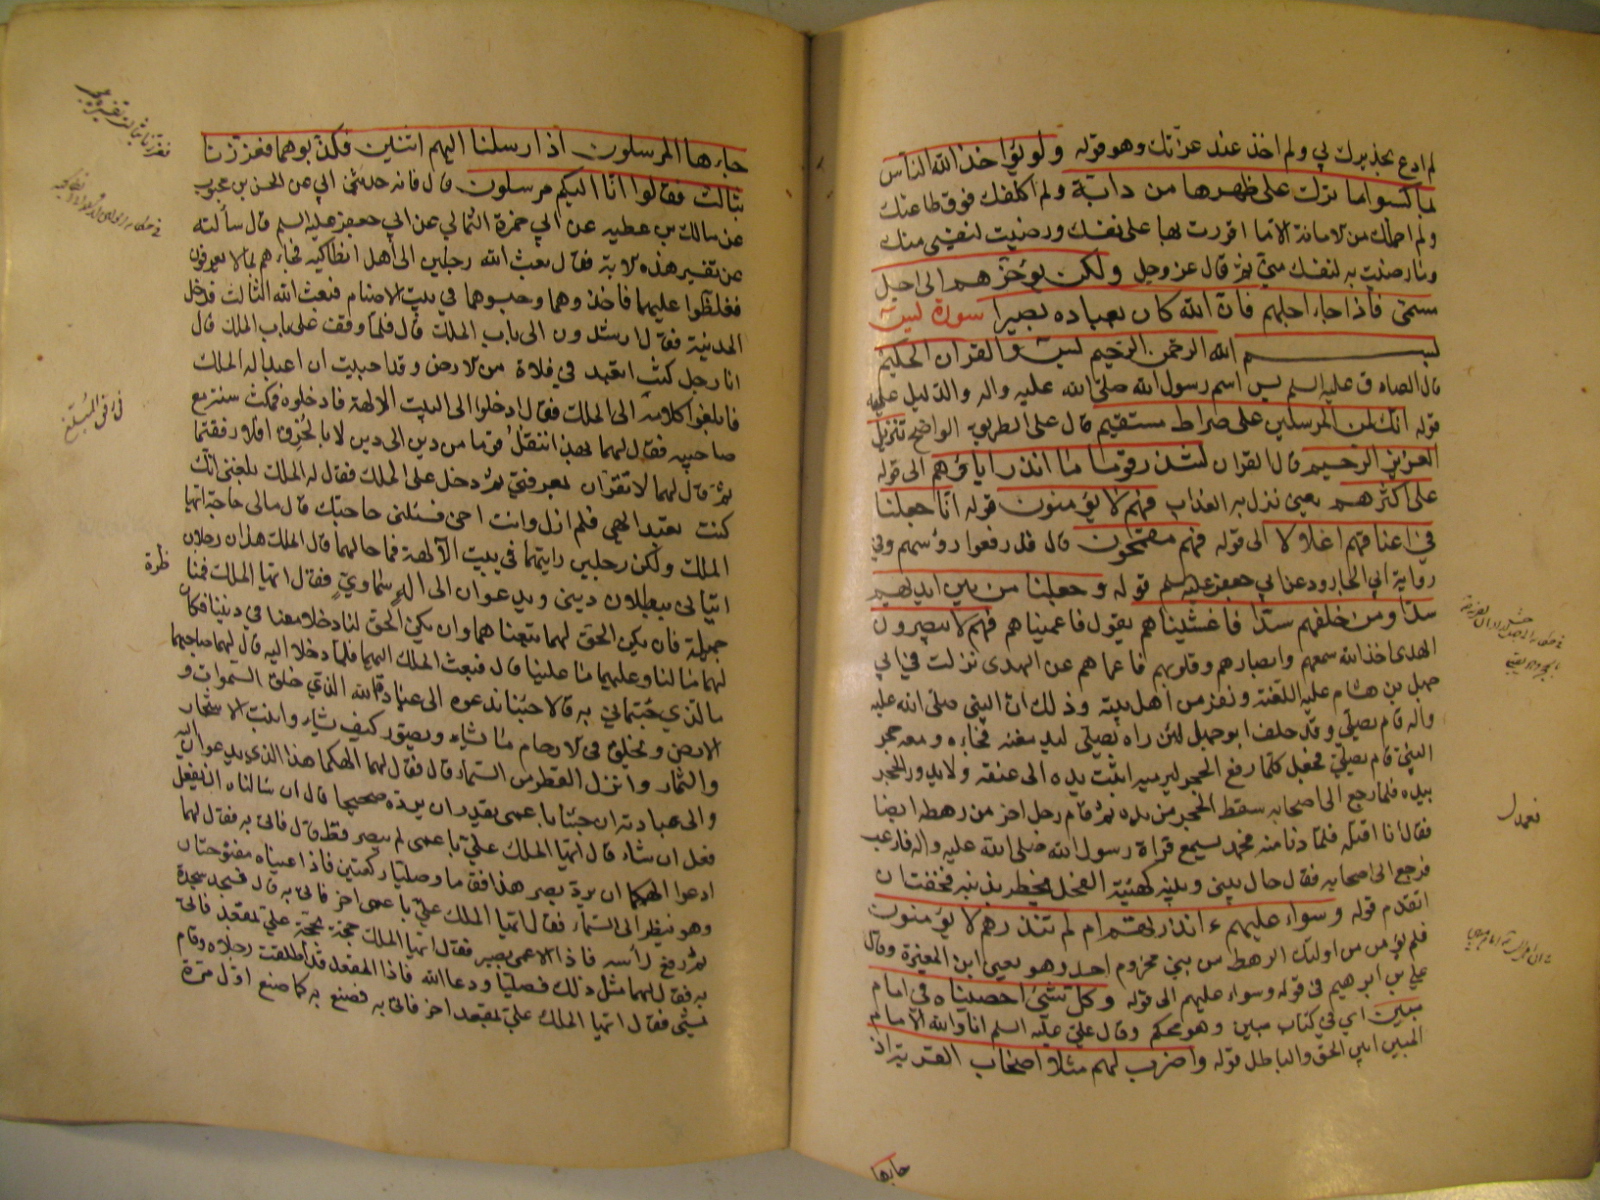 لم ادع تحذيرك بي ولم اخذ عند عزتك وهو قوله ولو يؤاخذ الله الناس
بما كسبوا ما ترك على ظهرها من دابة ولم اكلفك فوق طاعتك
ولم احملك من الامانة الا ما اقررت بها على نفسك ورضيت لنفسي منك
وما رضيت به لنفسك مني ثم قال عز وجل ولكن يؤخرهم الى اجل
مسمى فاذا جاء اجلهم فان الله كان بعباده بصيرا سورة يس
بسم الله الرحمن الرحيم يس والقران الحكيم
قال الصادق عليه السلم يس اسم رسول الله صلى الله عليه واله والدليل عليه
قوله انك لمن المرسلين على صراط مستقيم قال على الطريق الواضح تنزيل
العزيز الرحيم قال القران لتنذر قوما ما انذر اباؤهم الى قوله
على اكثرهم يعني نزل به العذاب فهم لا يؤمنون قوله انا جعلنا
في اعناقهم اغلالا الى قوله فهم مقمحون قال قد رفعوا رؤسهم وفي
رواية ابي الجارود عن ابي جعفر عليه السلم قوله وجعلنا من بين ايديهم
سدا ومن خلفهم سدا فاغشيناهم يقول فاعميناهم فهم لا يبصرون
الهدى اخذ الله سمعهم وابصارهم وقلوبهم فاعماهم عن الهدى نزلت في ابي
جهل بن هشام عليه اللعنة ونفر من اهل بيته وذلك ان النبي صلى الله عليه
واله قام يصلي وقد حلف ابو جهل لئن راه يصلي ليدمغنه فجاءه ومعه حجر
النبي قام يصلي فجعل كلما رفع الحجر ليرميه اثبت يده الى عنقه ولا يدور الحجر
بيده فلما رجع الى اصحابه سقط الحجر من يده ثم قام رجل اخر من رهطه ايضا
فقال انا اقتله فلما دنا منه فجعل يسمع قراة رسول الله صلى الله عليه واله فارعب
فرجع الى اصحابه فقال حال بيني وبينه كهيئة الفحل يخطر بذنبه فخفت ان
اتقدم قوله وسواء عليهم ءانذرتهم ام لم تنذرهم لا يؤمنون
فلم يؤمن من اولئك الرهط من بني مخزوم احد وهو يعني ابن المغيرة وقال
علي بن ابرهيم في قوله وسواء عليهم الى قوله وكل شئ احصيناه في امام
مبين اي في كتاب مبين وهو محكم وقال علي عليه السلم انا والله الامام
المبين ابين الحق والباطل قوله واضرب لهم مثلا اصحاب القرية اذ
جاءها
نعدل
جاءها المرسلون اذ ارسلنا اليهم اثنين فكذبوهما فعززنا
بثالث فقالوا انا اليكم مرسلون قال فانه حدثني ابي عن الحسن بن محبوب
عن مالك بن عطيه عن ابي حمزة الثمالي عن ابي جعفر عليه السلم قال سألته
عن تفسير هذه الاية فقال بعث الله رجلين الى اهل انطاكيه فجاءهم بما لا يعرفون
فغلظوا عليهما فاخذوهما وحبسوهما في بيت الاصنام فبعث الله الثالث فدخل
المدينة فقال ارشدون الى باب الملك قال فلما وقف على باب الملك قال
انا رجل كنت اتعبد في فلاة من الارض وقد احببت ان اعبد اله الملك
فابلغوا كلامه الى الملك فقال ادخلوا الى البيت الالهة فادخلوه فمكث سنة مع
صاحبيه فقال لهما بهذا ننقل قوما من دين الى دين لا بالخرق افلا رفقتما
ثم قال لهما لا تقران بمعرفتي ثم دخل على الملك فقال له الملك بلغني انك
كنت تعبد الهي فلم ازل وانت اخي فسئلني حاجتك قال مالي حاجة ايها
الملك ولكن رجلين رايتهما في بيت الالهة فما حالهما قال الملك هذان رجلان
اتياني يبطلان ديني ويدعوان الى اله سماوي فقال ايها الملك فمناظرة
جميلة فان يكن الحق لهما تبعناهما وان يكن الحق لنا دخلا معنا في ديننا فكان
لهما ما لنا وعليهما ما علينا قال فبعث الملك اليهما فلما دخلا اليه قال لهما صاحبهما
ما الذي جئتماني به قالا جئنا ندعوه الى عبادة الله الذي خلق السموات و
الارض ويخلق في الارحام ما يشاء ويصور كيف يشاء وانبت الاشجار
والثمار وانزل القطر من السماء قال فقال لهما الهكما هذا الذي يدعوان اليه
والى عبادته ان جئنا باعمى يقدر ان يرده صحيحا قال ان سالناه ان يفعل
فعل ان شاء قال ايها الملك علي باعمى لم يبصر قط قال فاتى به فقال لهما
ادعوا الهكما ان يرد بصر هذا فقاما وصليا ركعتين فاذا عيناه مفتوحتان
وهو ينظر الى السماء فقال ايها الملك علي باعمى اخر فاتى به قال فسجد سجدة
ثم رفع رأسه فاذا الاعمى بصير فقال ايها الملك حجة بحجة علي بمقعد فاتى
به فقال لهما مثل ذلك فصليا ودعا الله فاذا المقعد قد اطلقت رجلاه وقام
يمشي فقال ايها الملك علي بمقعد اخر فاتى به فصنع به كما صنع اول مرة